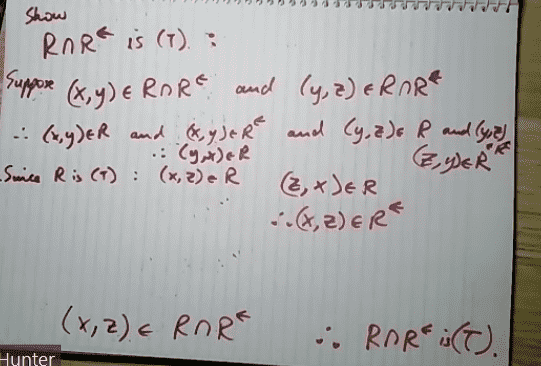 Show
R∩R← is (T). :
Suppose (x,y) ∈ R∩R← and (y,z) ∈ R∩R←
∴ (x,y)∈R and (x,y)∈R← and (y,z)∈ R and (y,z)
∴ (y,x)∈R (z,y)∈R
Since R is (T) : (x,z)∈ R (z,x)∈R
∴ (x,z) ∈ R←
(x,z) ∈ R∩R← ∴ R∩R← is (T).
Hunter